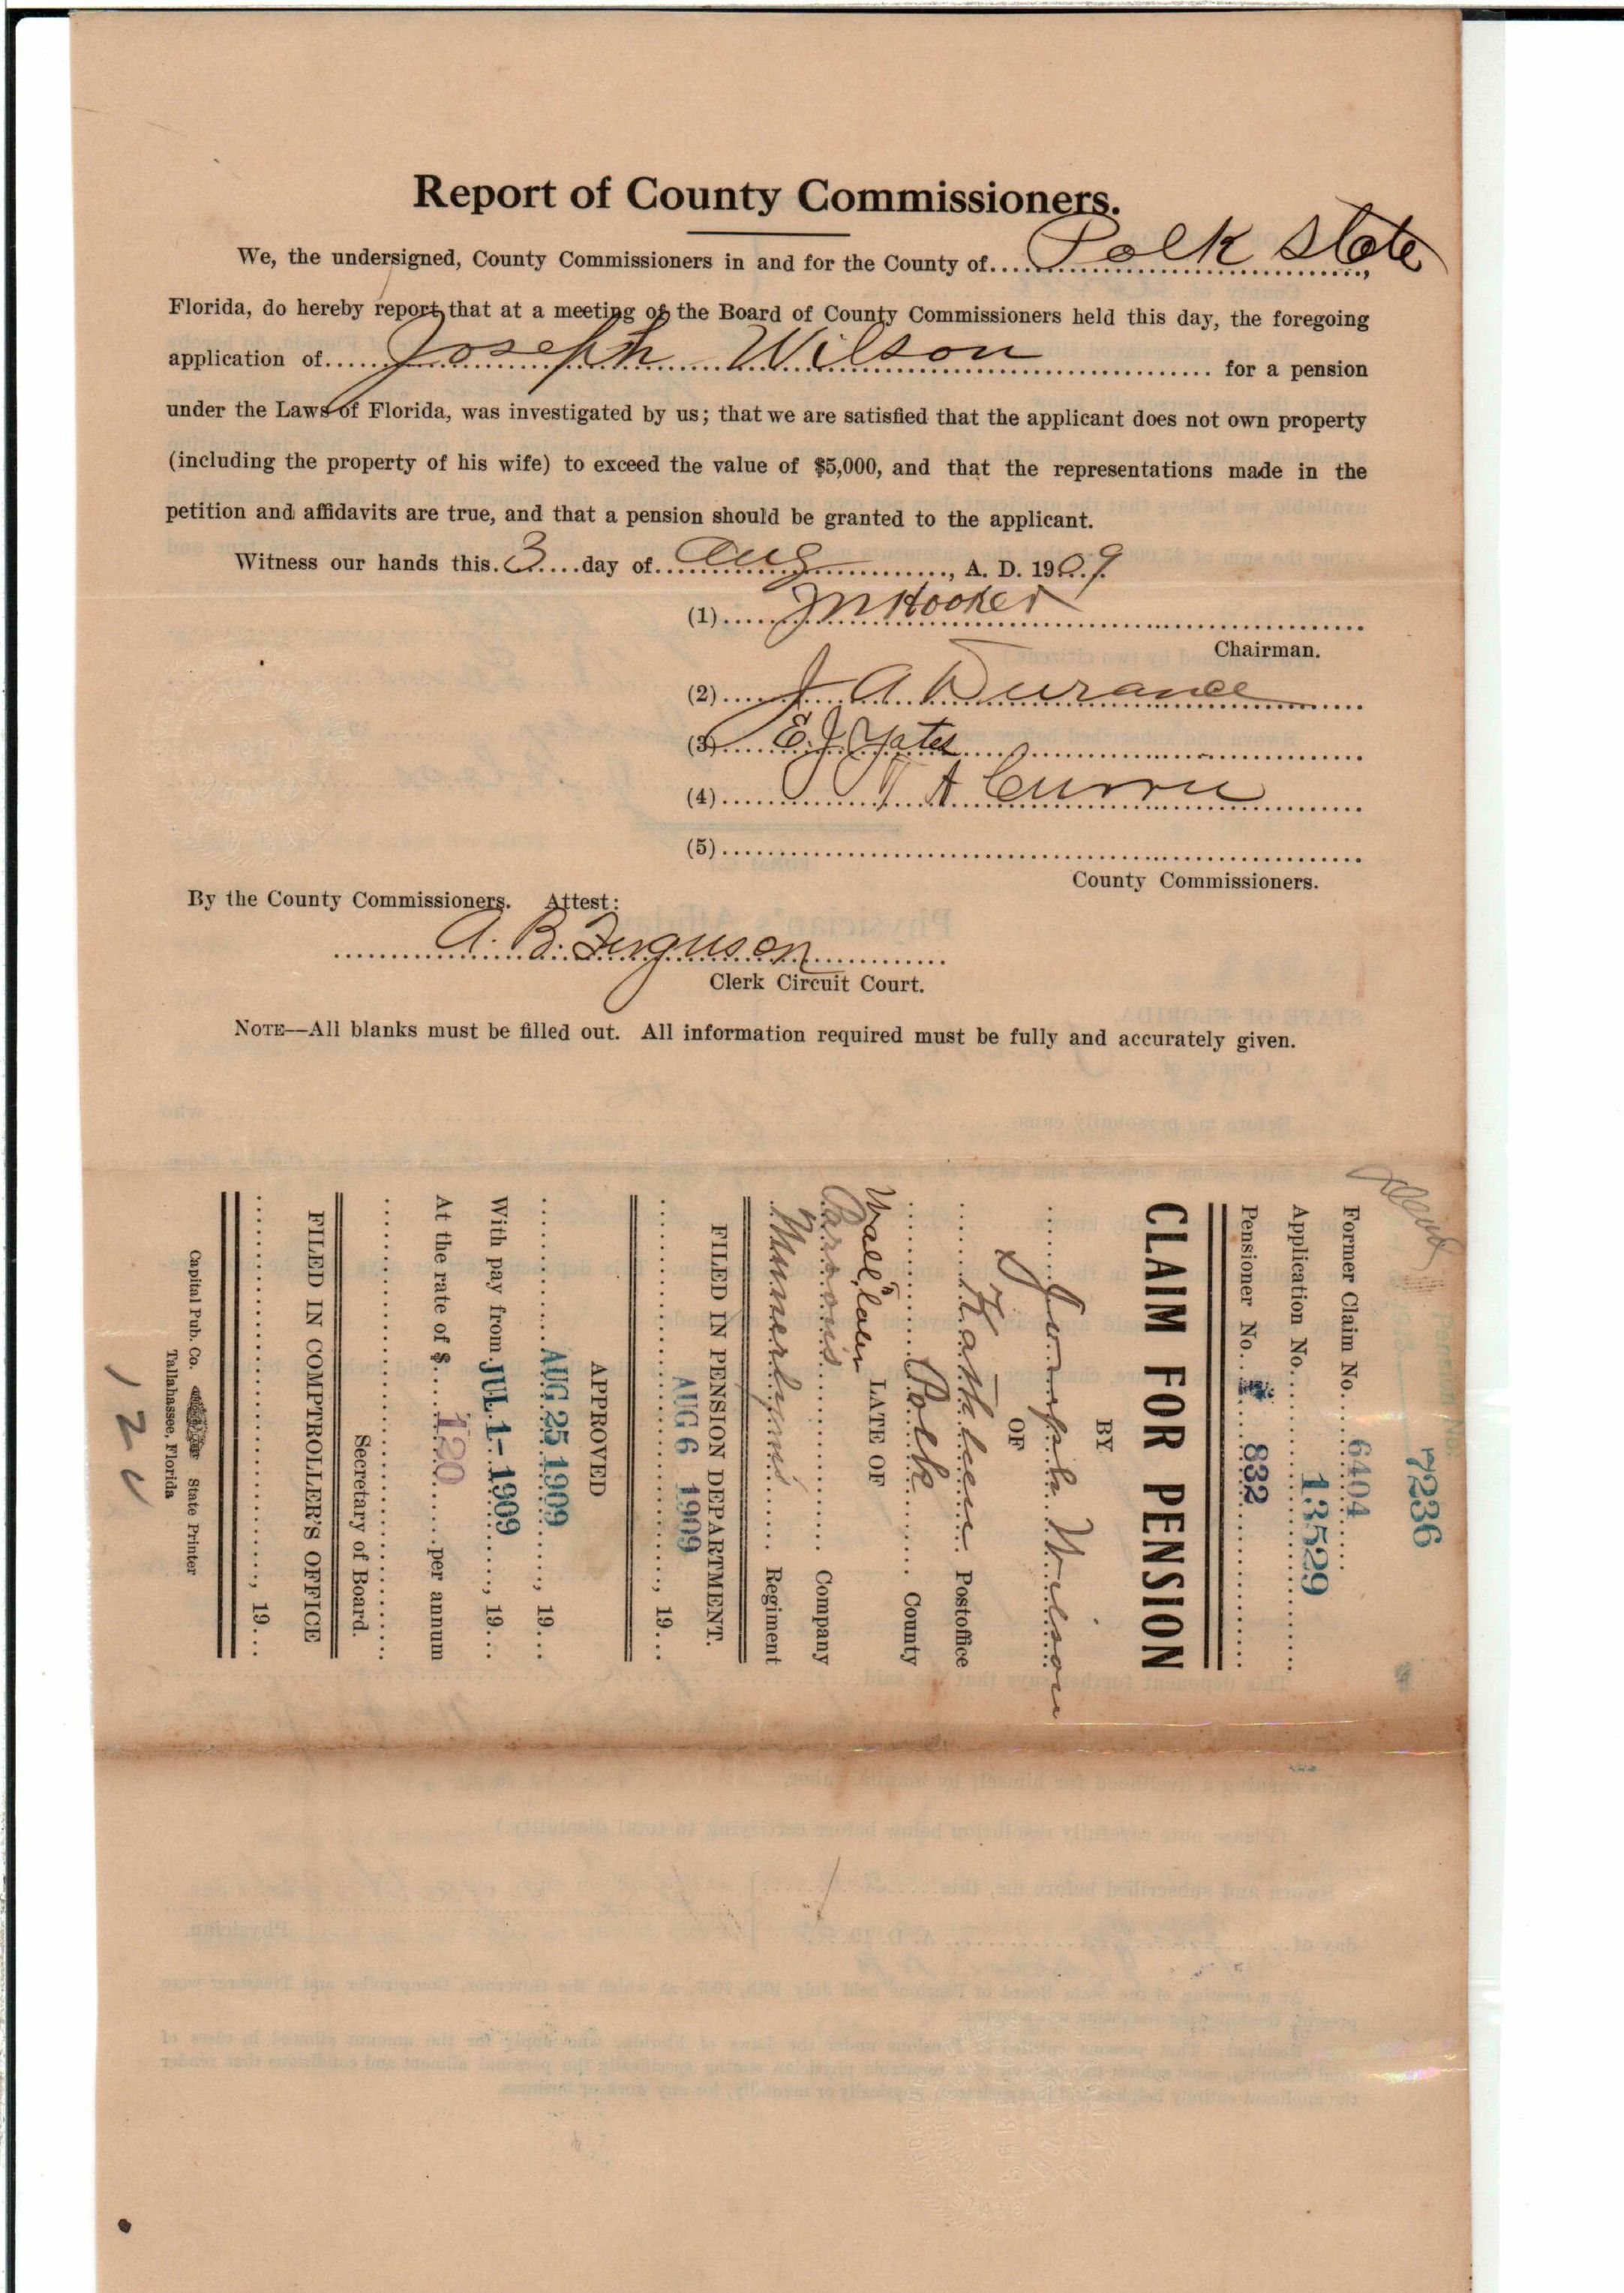 Report of County Commissioners.
We, the undersigned, County Commissioners in and for the County of Polk State,
Florida, do hereby report that at a meeting of the Board of County Commissioners held this day, the foregoing
application of Joseph Wilson for a pension
under the Laws of Florida, was investigated by us; that we are satisfied that the applicant does not own property
(including the property of his wife) to exceed the value of $5,000, and that the representations made in the
petition and affidavits are true, and that a pension should be granted to the applicant.
Witness our hands this 3 day of Aug, A. D. 1909.
(1) JN Hooker
Chairman.
(2) J A Durance
(3) E. J Yates
(4) A Currie
(5)
County Commissioners.
By the County Commissioners. Attest:
A. B. Ferguson
Clerk Circuit Court.
NOTE—All blanks must be filled out. All information required must be fully and accurately given.
Pension No.
7236
Former Claim No. 6404
Application No. 13529
Pensioner No. 832
CLAIM FOR PENSION
BY
Joseph Wilson
OF
Kathleen Postoffice
Polk County
LATE OF
Parsons Company
Munnerlyns Regiment
FILED IN PENSION DEPARTMENT.
AUG 6 1909, 19
APPROVED
AUG 25 1909, 19
With pay from JUL 1- 1909, 19
At the rate of $ 120 per annum
Secretary of Board.
FILED IN COMPTROLLER'S OFFICE
, 19
Capital Pub. Co. State Printer
Tallahassee, Florida
120